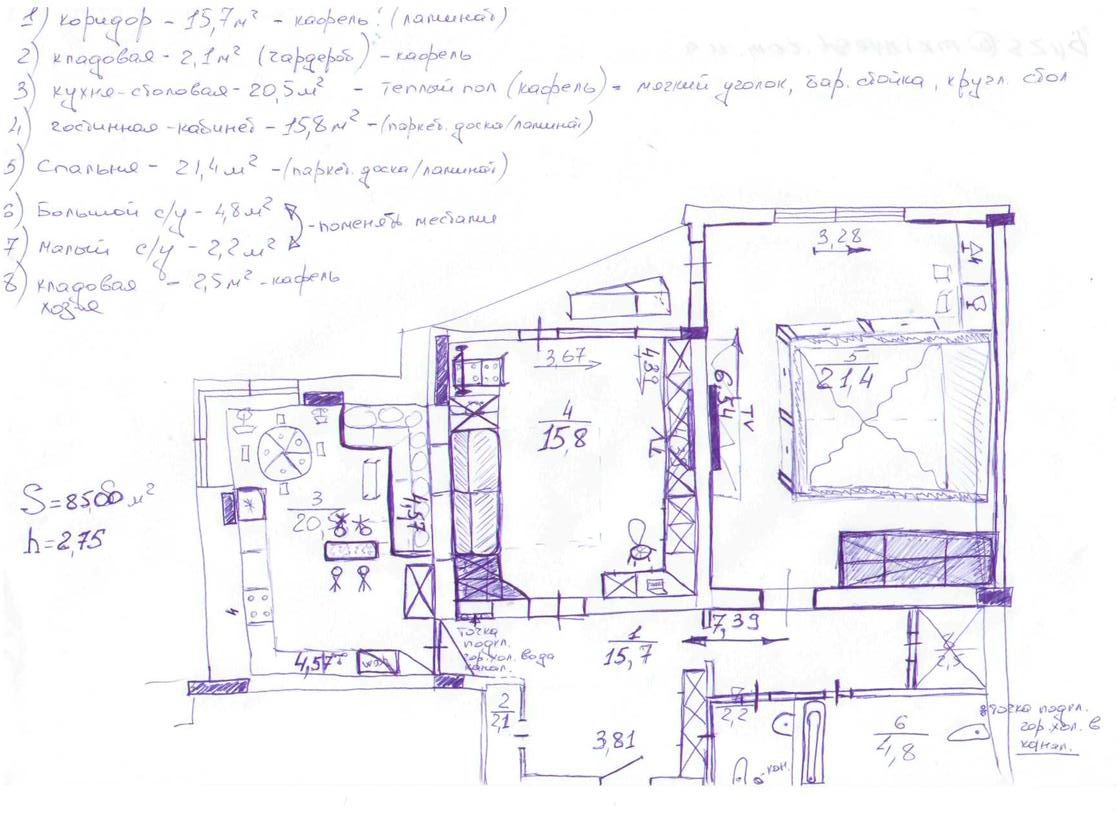 1) коридор - 15,7 м² - кафель! (ламинат)
2) кладовая - 2,1 м² (гардероб) - кафель
3) кухня-столовая - 20,5 м² - теплый пол (кафель) - мягкий уголок, бар. стойка, кругл. стол
4) гостинная-кабинет - 15,8 м² - (паркет. доска/ламинат)
5) Спальня - 21,4 м² - (паркет. доска/ламинат)
6) Большой с/у - 4,8 м²
- поменять местами
7) малый с/у - 2,2 м²
8) кладовая - 2,5 м² - кафель
хозяя
3,28
3,67
4,39
5
21,4
6,54
TV
4
15,8
S=85,00 м²
h=2,75
3
20,5
4,57
4
4,57
wash
точка
подкл.
гор.хол. вода
канал.
1
15,7
7,39
8
2,5
2
2,1
3,81
7
2,2
кан.
6
4,8
точка подкл.
гор.хол. в
канал.